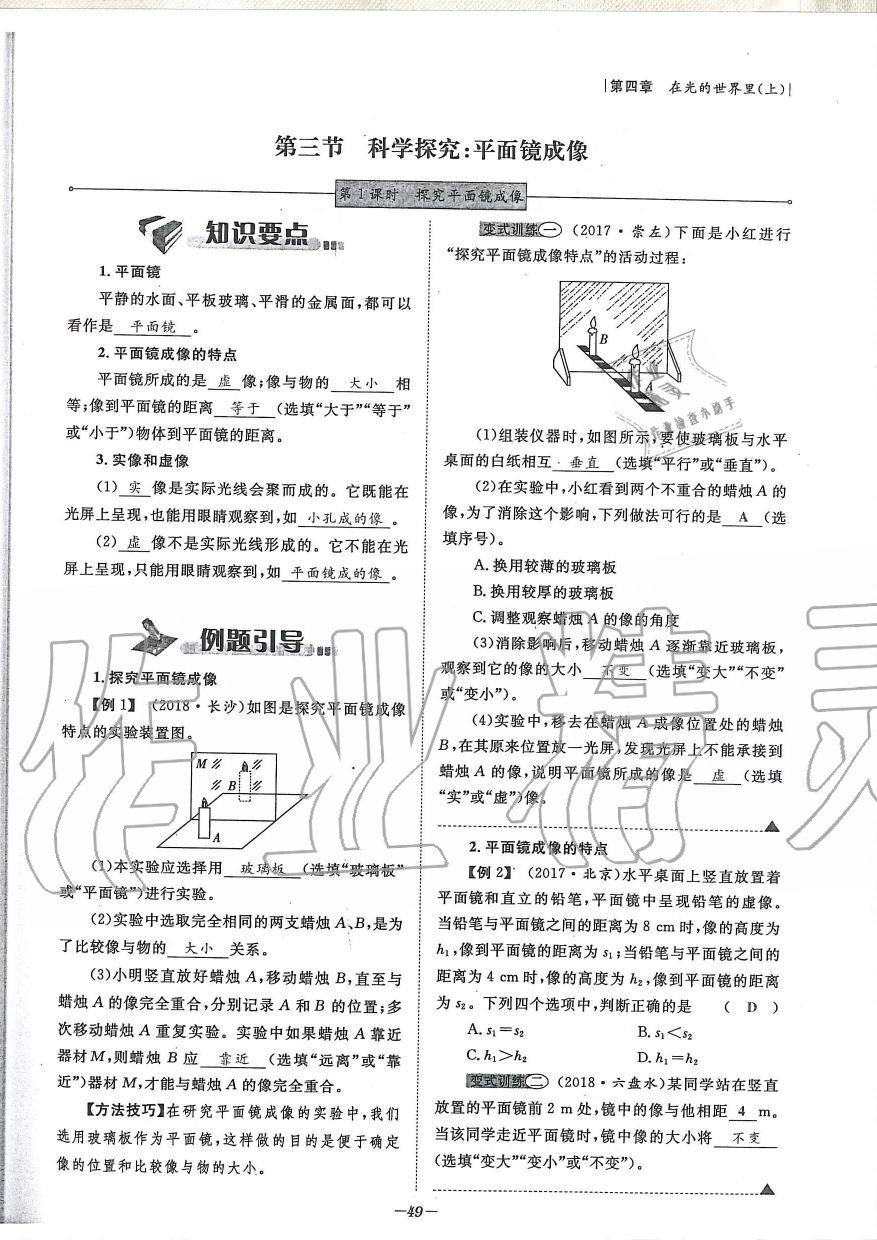 第四章　在光的世界里(上)
第三节　科学探究:平面镜成像
第1课时　探究平面镜成像
知识要点
1.平面镜
平静的水面、平板玻璃、平滑的金属面,都可以
看作是 平面镜 。
2.平面镜成像的特点
平面镜所成的是 虚 像;像与物的 大小 相
等;像到平面镜的距离 等于 (选填“大于”“等于”
或“小于”)物体到平面镜的距离。
3.实像和虚像
(1) 实 像是实际光线会聚而成的。它既能在
光屏上呈现,也能用眼睛观察到,如 小孔成的像 。
(2) 虚 像不是实际光线形成的。它不能在光
屏上呈现,只能用眼睛观察到,如 平面镜成的像 。
例题引导
1.探究平面镜成像
【例1】 (2018·长沙)如图是探究平面镜成像
特点的实验装置图。
M
B
A
(1)本实验应选择用 玻璃板 (选填“玻璃板”
或“平面镜”)进行实验。
(2)实验中选取完全相同的两支蜡烛A、B,是为
了比较像与物的 大小 关系。
(3)小明竖直放好蜡烛A,移动蜡烛B,直至与
蜡烛A的像完全重合,分别记录A和B的位置;多
次移动蜡烛A重复实验。实验中如果蜡烛A靠近
器材M,则蜡烛B应 靠近 (选填“远离”或“靠
近”)器材M,才能与蜡烛A的像完全重合。
【方法技巧】在研究平面镜成像的实验中,我们
选用玻璃板作为平面镜,这样做的目的是便于确定
像的位置和比较像与物的大小。
变式训练一 (2017·崇左)下面是小红进行
“探究平面镜成像特点”的活动过程:
B
A
(1)组装仪器时,如图所示,要使玻璃板与水平
桌面的白纸相互 垂直 (选填“平行”或“垂直”)。
(2)在实验中,小红看到两个不重合的蜡烛A的
像,为了消除这个影响,下列做法可行的是 A (选
填序号)。
A.换用较薄的玻璃板
B.换用较厚的玻璃板
C.调整观察蜡烛A的像的角度
(3)消除影响后,移动蜡烛A逐渐靠近玻璃板,
观察到它的像的大小 不变 (选填“变大”“不变”
或“变小”)。
(4)实验中,移去在蜡烛A成像位置处的蜡烛
B,在其原来位置放一光屏,发现光屏上不能承接到
蜡烛A的像,说明平面镜所成的像是 虚 (选填
“实”或“虚”)像。
2.平面镜成像的特点
【例2】 (2017·北京)水平桌面上竖直放置着
平面镜和直立的铅笔,平面镜中呈现铅笔的虚像。
当铅笔与平面镜之间的距离为8 cm时,像的高度为
h₁,像到平面镜的距离为s₁;当铅笔与平面镜之间的
距离为4 cm时,像的高度为h₂,像到平面镜的距离
为s₂。下列四个选项中,判断正确的是 ( D )
A.s₁=s₂　B.s₁<s₂
C.h₁>h₂　D.h₁=h₂
变式训练二 (2018·六盘水)某同学站在竖直
放置的平面镜前2 m处,镜中的像与他相距 4 m。
当该同学走近平面镜时,镜中像的大小将 不变
(选填“变大”“变小”或“不变”)。
—49—
作业精灵